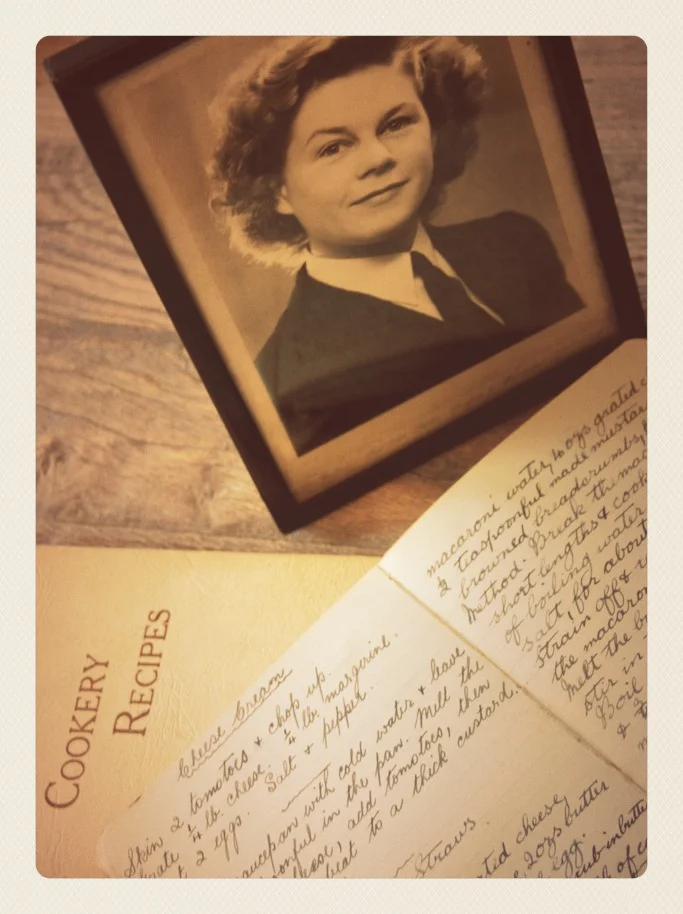 COOKERY
RECIPES
Cheese Cream
Skin 2 tomatoes & chop up.
grate ¼ lb. cheese. ¼ lb. margarine.
2 eggs. Salt & pepper.
saucepan with cold water & leave
in the pan. Melt the
cheese, add tomatoes, then
heat to a thick custard.
Straws.
cheese,
2ozs butter
egg.
macaroni water, 4 ozs grated
½ teaspoonful made mustard
browned breadcrumbs,
Method. Break the
short lengths & cook
of boiling water
salt, for about
Strain off &
the macaroni
Melt the
stir in
Boil
&